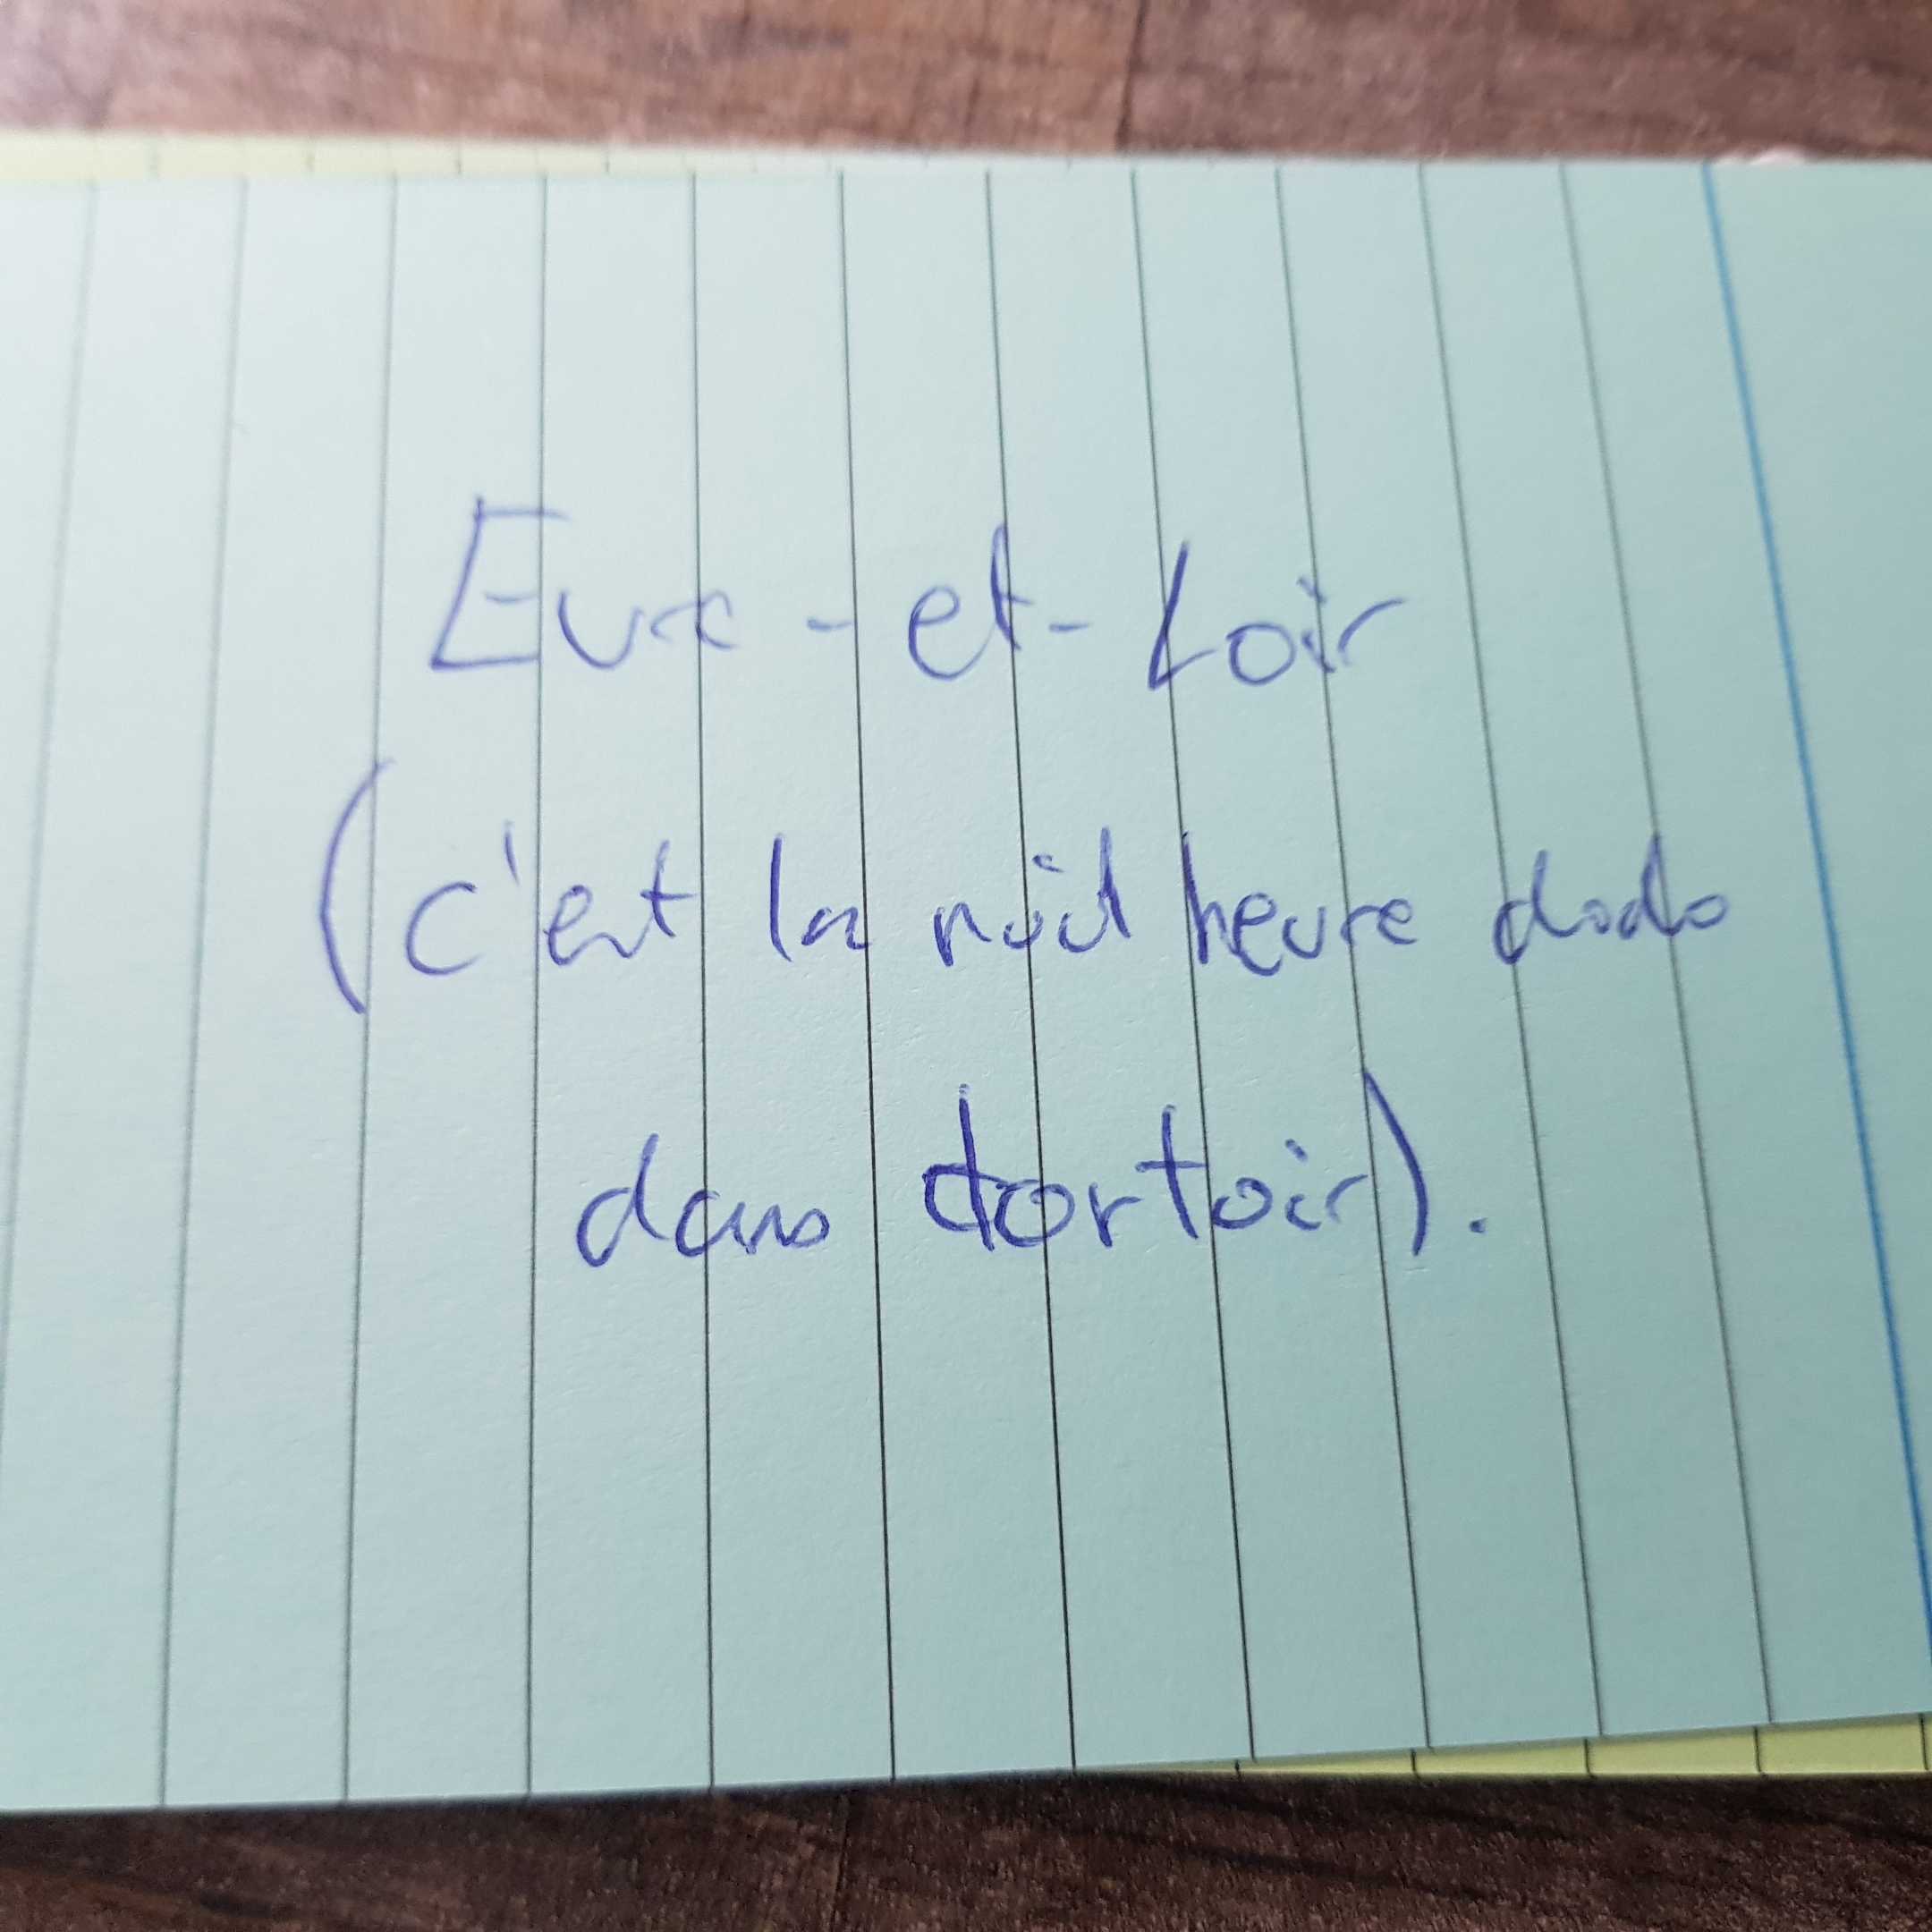 Eure-et-Loir
(c'est la nuit heure dodo
dans dortoir).